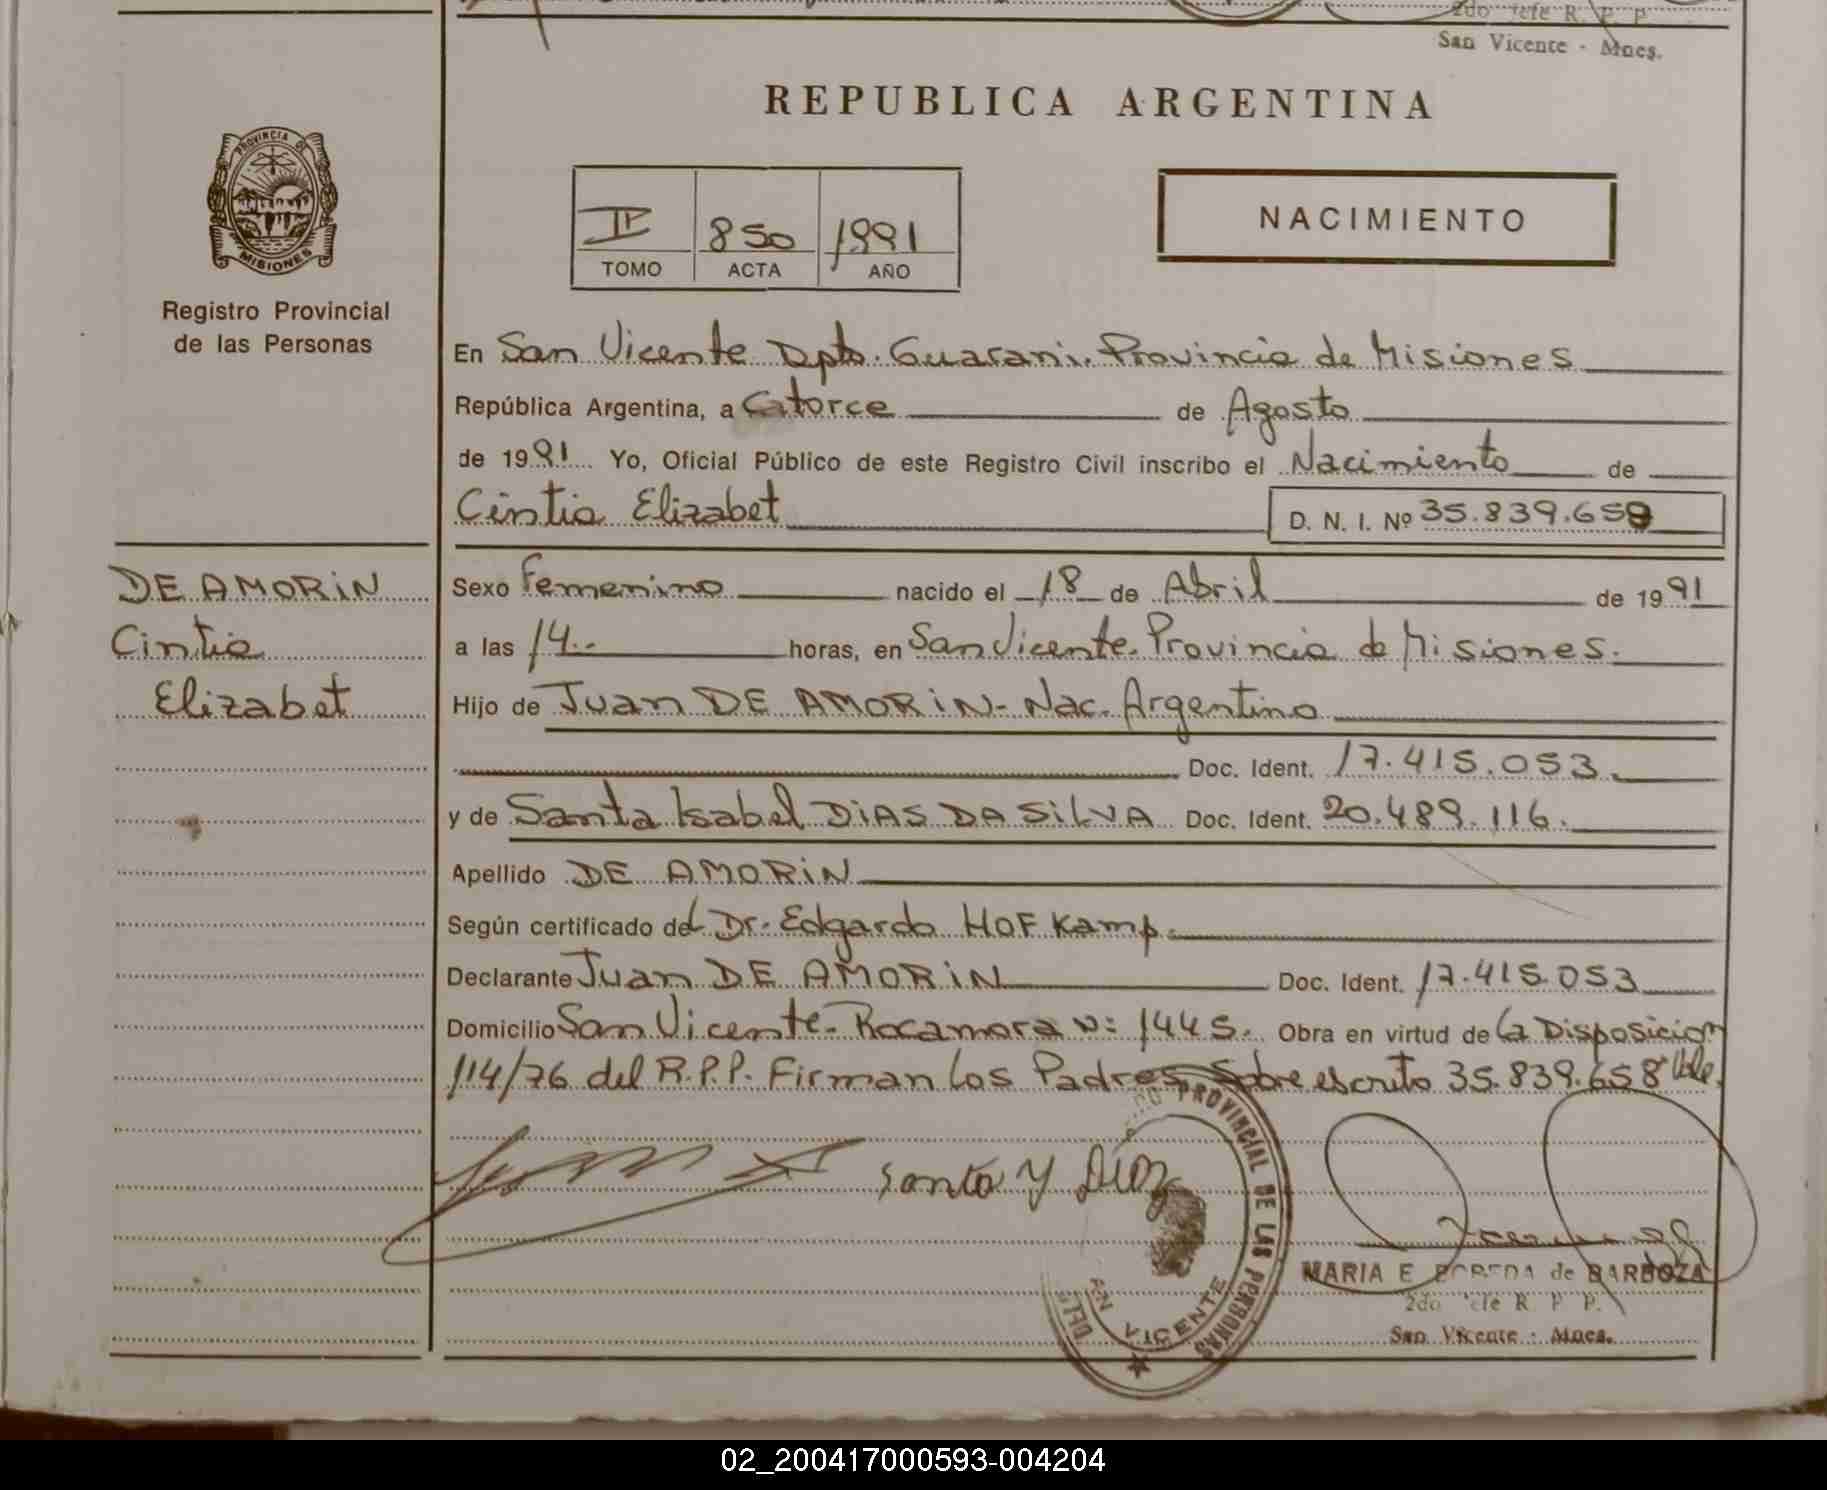 2do Jefe R. P. P.
San Vicente - Mnes.
REPUBLICA ARGENTINA
PROVINCIA DE
MISIONES
Registro Provincial
de las Personas
II 850 1991
TOMO ACTA AÑO
NACIMIENTO
En San Vicente Dpto. Guarani. Provincia de Misiones
República Argentina, a Catorce de Agosto
de 1991 Yo, Oficial Público de este Registro Civil inscribo el Nacimiento de
Cintia Elizabet D. N. I. Nº 35.839.658
DE AMORiN
Cintia
Elizabet
Sexo Femenino nacido el 18 de Abril de 1991
a las 14.- horas, en San Vicente. Provincia de Misiones.
Hijo de Juan DE AMORiN - Nac. Argentino
Doc. Ident. 17.415.053
y de Santa Isabel DiAS DA SiLVA Doc. Ident. 20.489.116.
Apellido DE AMORiN
Según certificado del Dr. Edgardo HOFKamp.
Declarante Juan DE AMORiN Doc. Ident. 17.415.053
Domicilio San Vicente - Rocamora nº 1445. Obra en virtud de La Disposicion
114/76 del R.P.P. Firman los Padres. Sobre escrito 35.839.658 "Vale.
Santa Y Diaz
PROVINCIAL DE LAS PERSONAS
VICENTE
MARIA E. de BARBOZA
2do Jefe R. P. P.
San Vicente - Mnes.
02_200417000593-004204